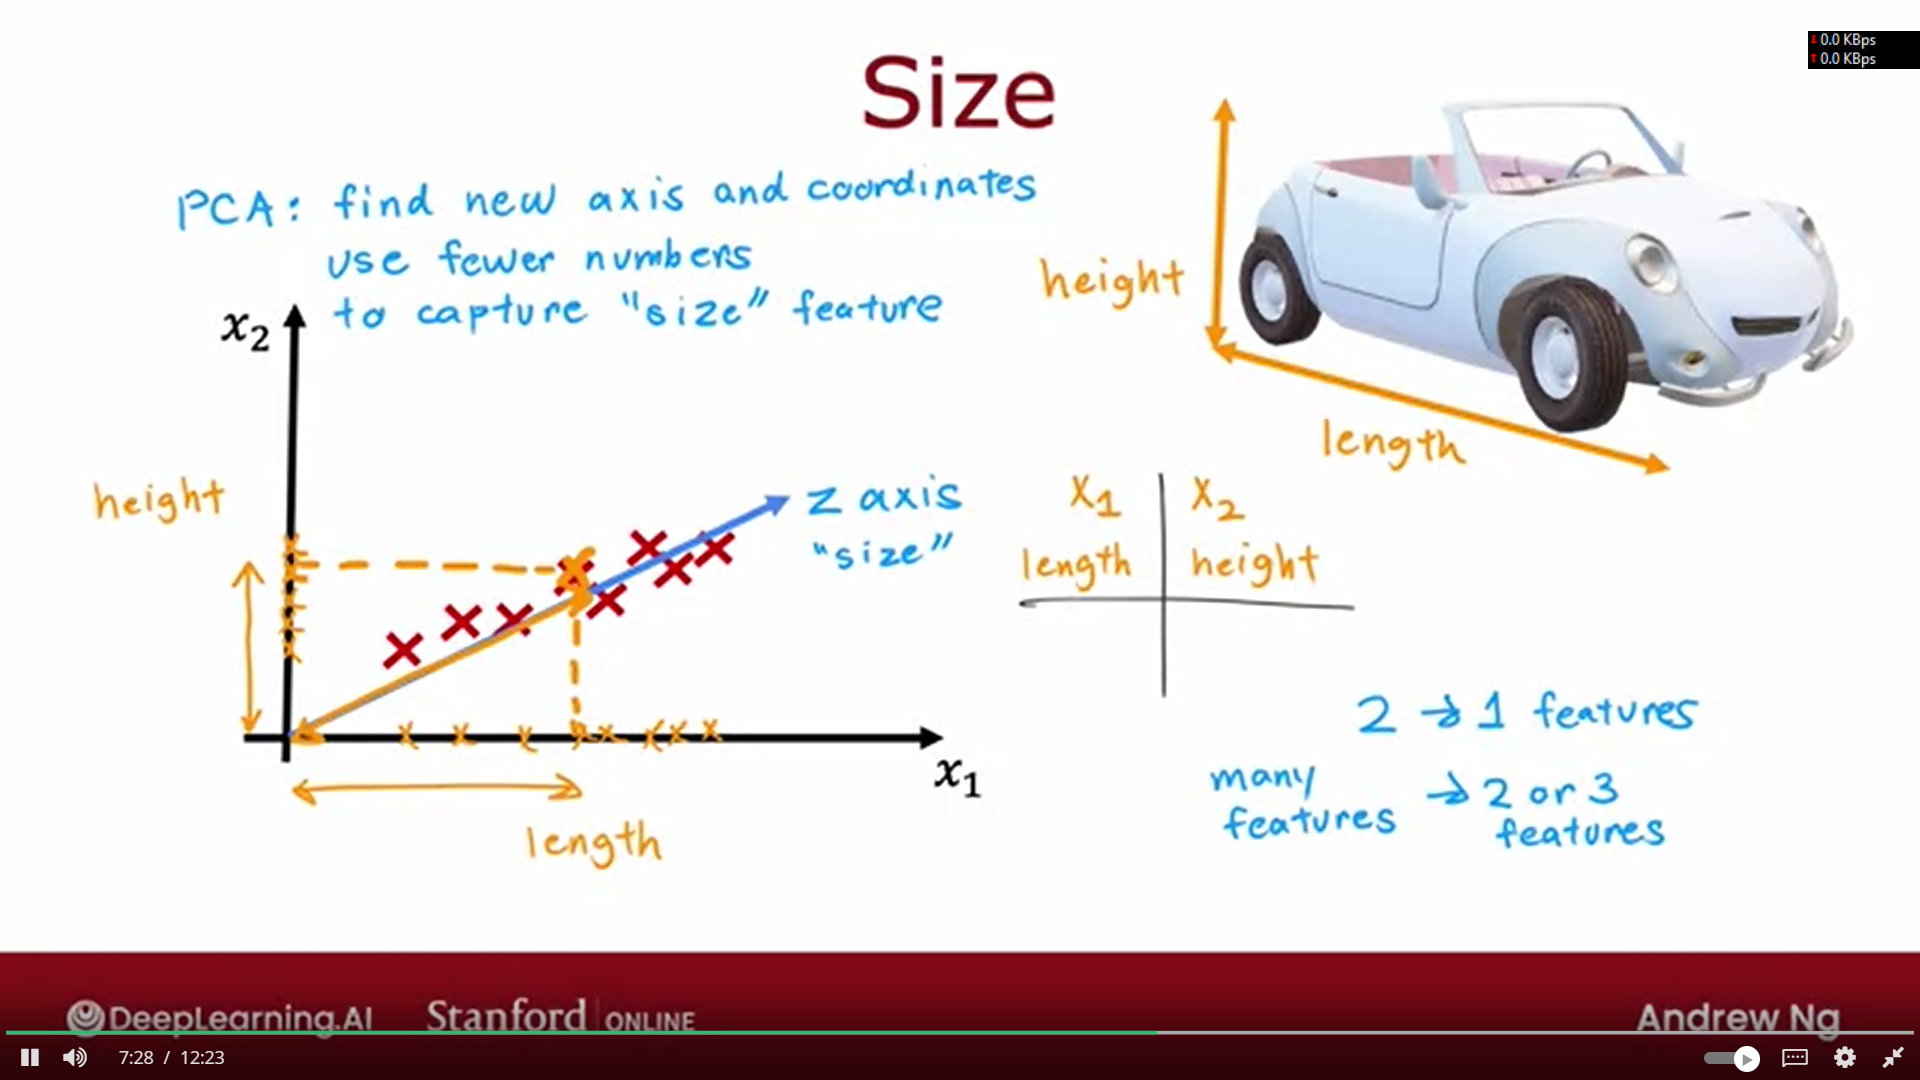 0.0 KBps
0.0 KBps
Size
PCA: find new axis and coordinates
use fewer numbers
to capture "size" feature
height
length
x₂
height
z axis
"size"
x₁
length
X₁ X₂
length height
2 → 1 features
many features → 2 or 3 features
DeepLearning.AI Stanford | ONLINE Andrew Ng
7:28 / 12:23